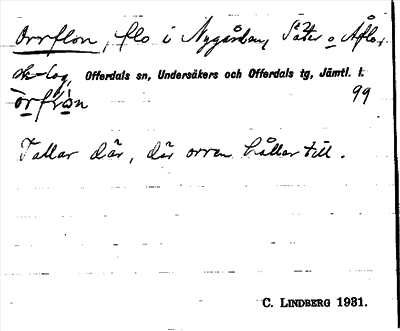 Orrflon, flo i Nygården, Säter o Åflo,
sk-lag, Offerdals sn, Undersåkers och Offerdals tg, Jämtl. l.
örfrån 99
Tallar där, där orren håller till.
C. LINDBERG 1931.